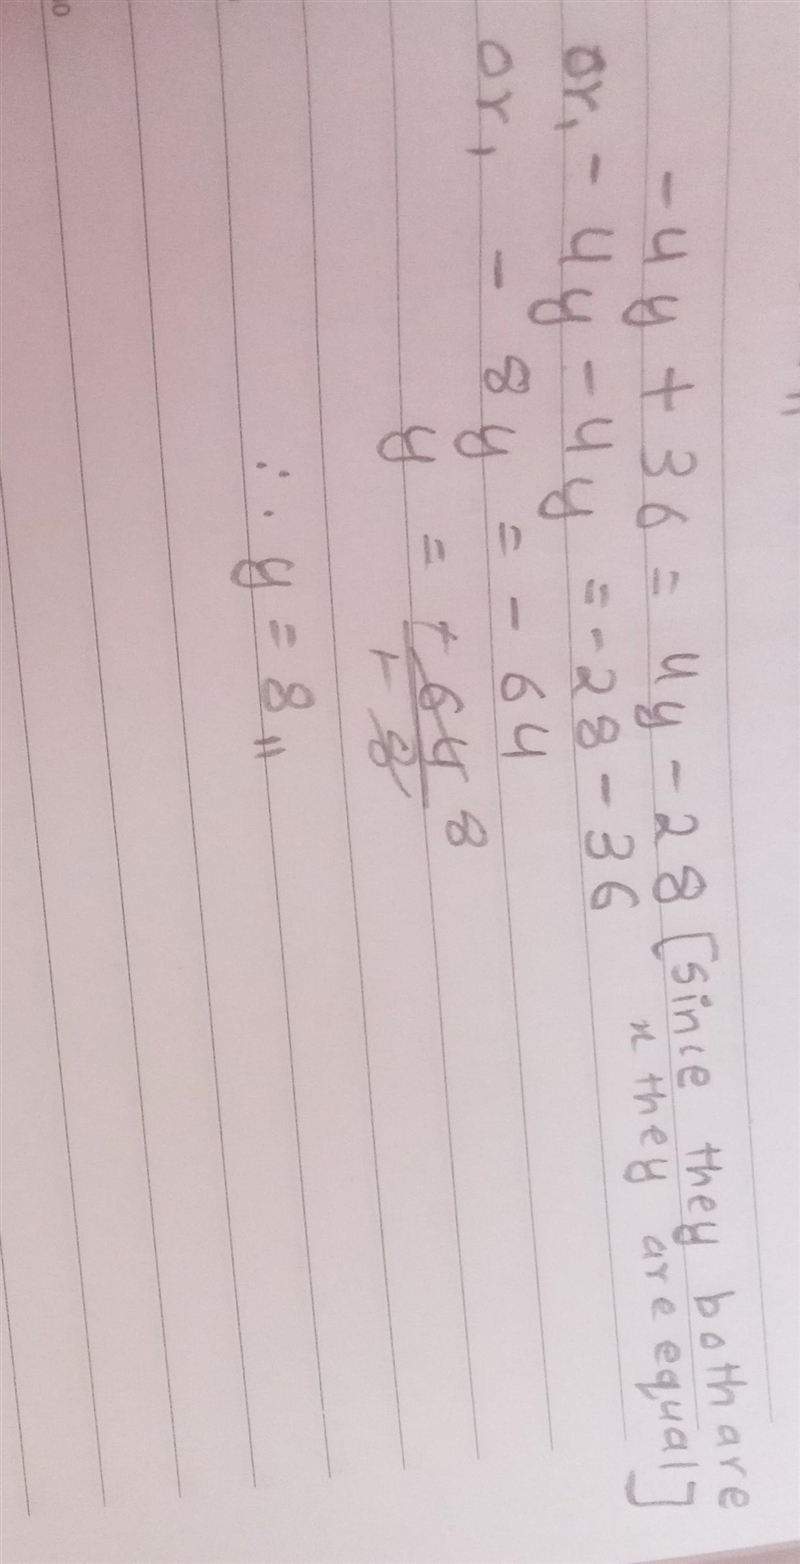 -4y + 36 = 4y - 28 [since they both are
x they are equal]
or, -4y - 4y = -28 - 36
or, -8y = -64
y = +64 8
+8
∴ y = 8 "